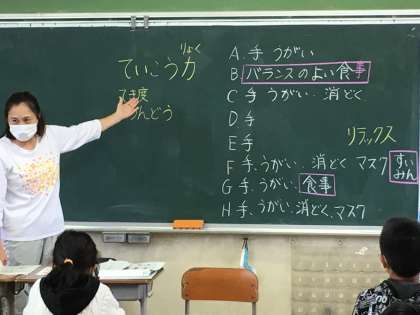 ていこう力
りょく
うんどう
A. 手 うがい
B バランスのよい食事
C 手 うがい. 消どく
D 手
E 手
リラックス
F 手. うがい. 消どく マスク すいみん
G 手. うがい. 食事
H 手. うがい. 消どく. マスク